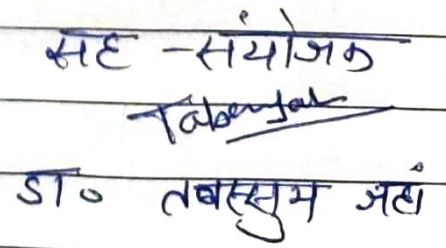 सह - संयोजक
डा० तबस्सुम जहां